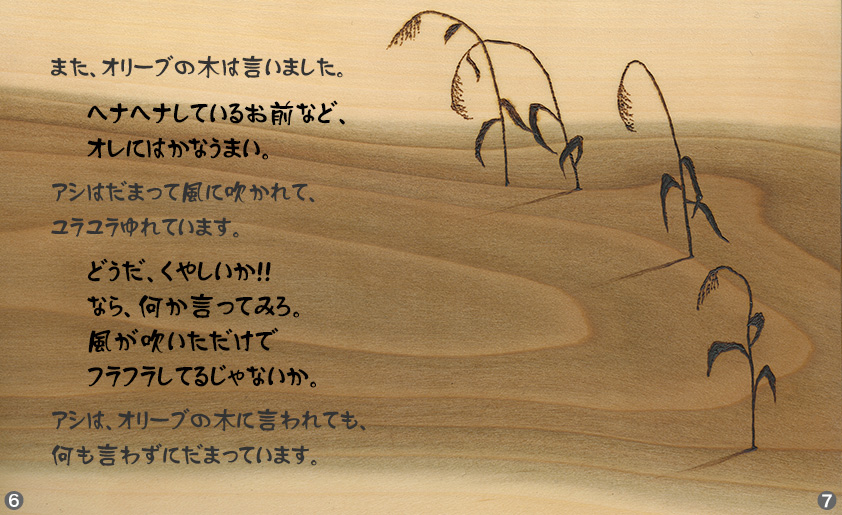 また、オリーブの木は言いました。
ヘナヘナしているお前など、
オレにはかなうまい。
アシはだまって風に吹かれて、
ユラユラゆれています。
どうだ、くやしいか!!
なら、何か言ってみろ。
風が吹いただけで
フラフラしてるじゃないか。
アシは、オリーブの木に言われても、
何も言わずにだまっています。
6
7